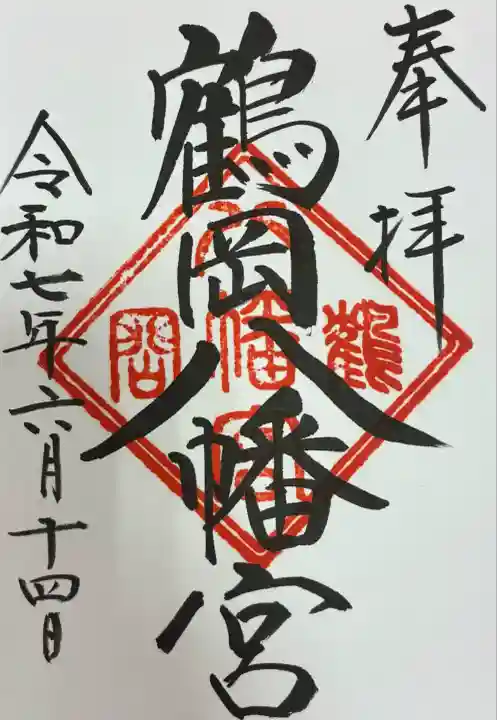 奉拝
鶴岡八幡宮
令和七年六月十四日
鶴
八幡宮
岡